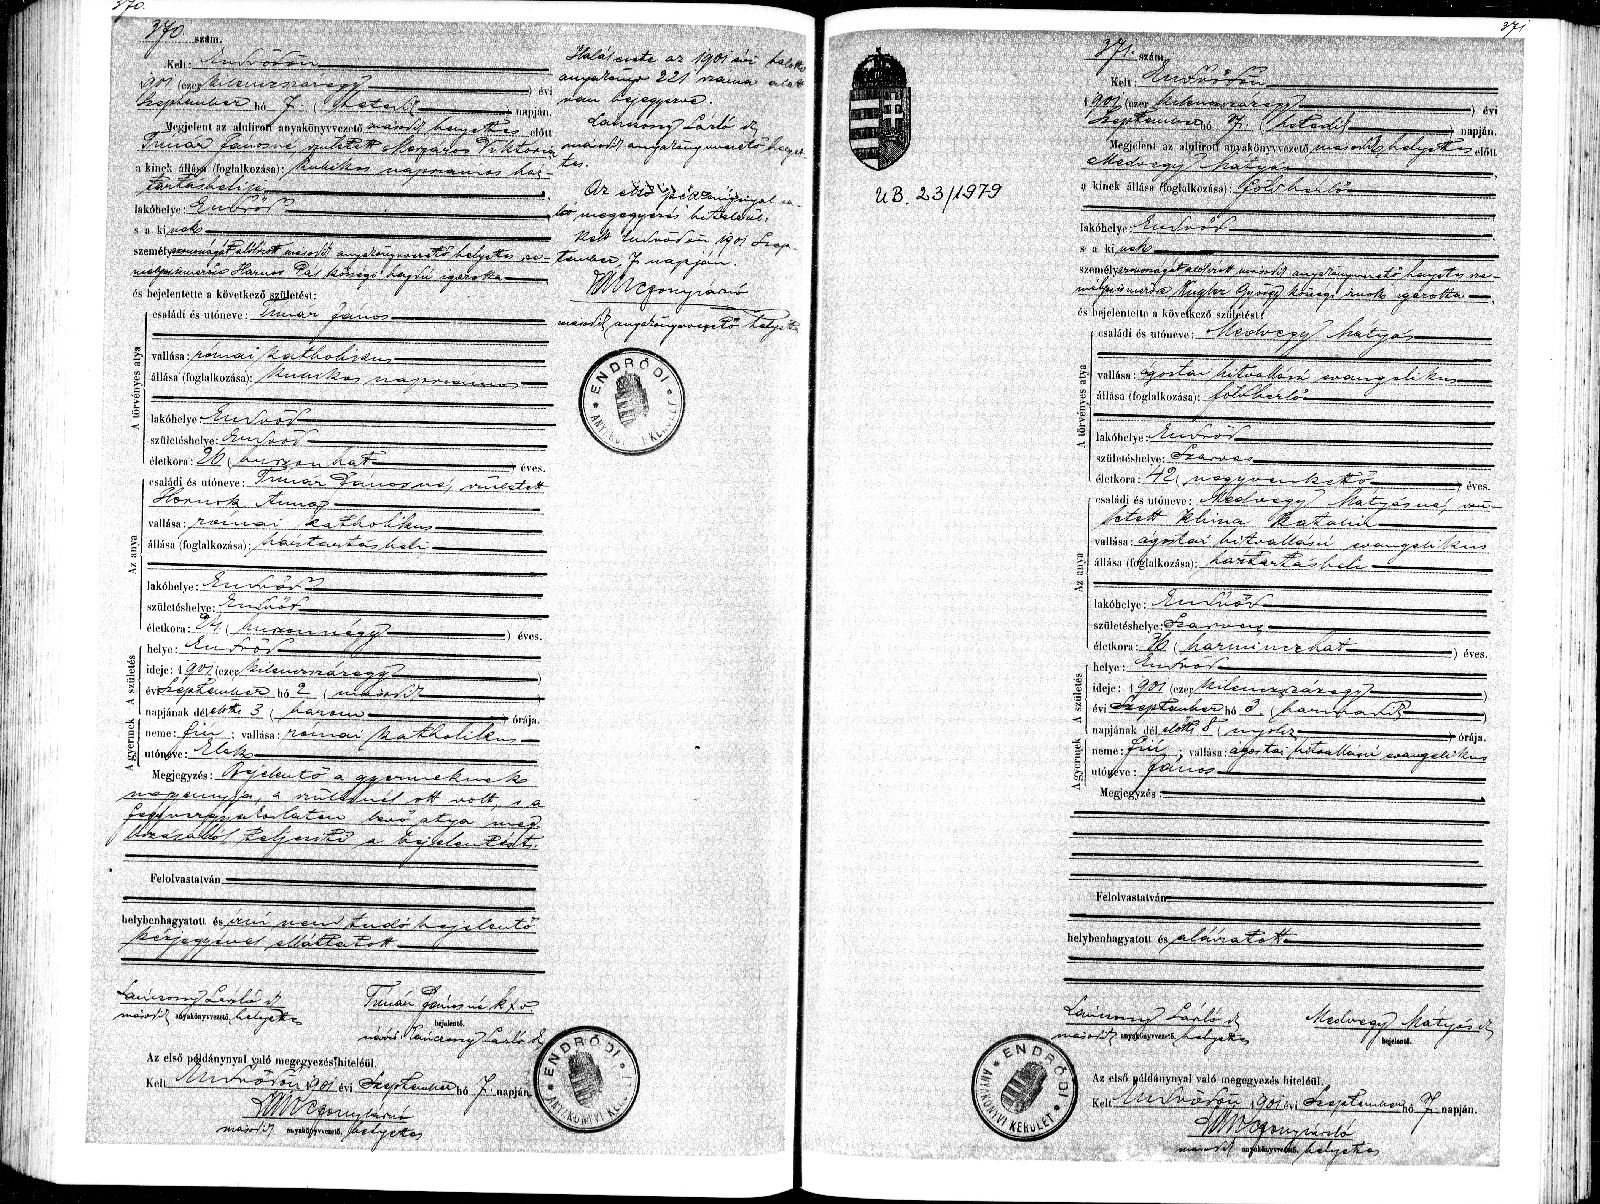 370.
370. szám.
Kelt: Endrődön
1901 (ezer kilenczszázegy) évi
Szeptember hó 7. (hetedik) napján.
Megjelent az alulirott anyakönyvvezető második helyettes előtt
Timár Jánosné született Mészáros Viktória
a kinek állása (foglalkozása): kubikos napszámos ház-
tartásbelije
lakóhelye: Endrőd
s a kinek
személyazonosságát alólirott második anyakönyvvezető helyettes sze-
mélyes ismerőse Harnos Pál községi hajdú igazolta
és bejelentette a következő születést:
A törvényes atya
családi és utóneve: Timár János
vallása: római katholikus
állása (foglalkozása): kubikos napszámos
lakóhelye: Endrőd
születéshelye: Endrőd
életkora: 26 (huszonhat) éves.
Az anya
családi és utóneve: Timár Jánosné, született
Hornok Anna
vallása: római katholikus
állása (foglalkozása): háztartásbeli
lakóhelye: Endrőd
születéshelye: Endrőd
életkora: 24 (huszonnégy) éves.
A születés
helye: Endrőd
ideje: 1901 (ezer kilenczszázegy)
évi Szeptember hó 2 (második)
napjának dél előtti 3 (három) órája.
A gyermek
neme: fiú; vallása: római katholikus
utóneve: Elek
Megjegyzés: Bejelentő a gyermeknek
nagyanyja, a szülésnél ott volt, s a
fegyvergyakorlaton levő atya meg-
bizásából teljesiti a bejelentést.
Felolvastatván
helybenhagyatott és irni nem tudó bejelentő
kézjegyével elláttatott
Lánczony László
második anyakönyvvezető, helyettes
Timár Jánosné k+v
bejelentő.
névíró Lánczony László
Az első példánynyal való megegyezés hiteléül.
Kelt Endrődön 1901 évi Szeptember hó 7 napján.
második anyakönyvvezető, helyettes
ENDRŐDI
ANYAKÖNYVI KERÜLET
Halál esete az 1901 évi halotti
anyakönyv 221 száma alatt
van bejegyezve.
Lánczony László
második anyakönyvvezető helyet-
tes.
Az első példánynyal va-
ló megegyezés hiteléül.
Kelt Endrődön 1901 Szep-
tember 7 napján.
második anyakönyvvezető helyettes
ENDRŐDI
371
371. szám.
Kelt Endrődön
1901 (ezer kilenczszázegy) évi
Szeptember hó 7. (hetedik) napján.
Megjelent az alulirott anyakönyvvezető második helyettes előtt
Medvegy Mátyás
a kinek állása (foglalkozása): földbérlő
lakóhelye: Endrőd
s a kinek
személyazonosságát alólirott második anyakönyvvezető helyettes sze-
mélyes ismerőse Kugler György községi irnok igazolta
és bejelentette a következő születést:
A törvényes atya
családi és utóneve: Medvegy Mátyás
vallása: ágostai hitvallású evangelikus
állása (foglalkozása): földbérlő
lakóhelye: Endrőd
születéshelye: Szarvas
életkora: 42 (negyvenkettő) éves.
Az anya
családi és utóneve: Medvegy Mátyásné, szü-
letett Klina Katalin
vallása: ágostai hitvallású evangelikus
állása (foglalkozása): háztartásbeli
lakóhelye: Endrőd
születéshelye: Szarvas
életkora: 36 (harminczhat) éves.
A születés
helye: Endrőd
ideje: 1901 (ezer kilenczszázegy)
évi Szeptember hó 3. (harmadik)
napjának dél előtti 8 (nyolcz) órája.
A gyermek
neme: fiú; vallása: ágostai hitvallású evangelikus
utóneve: János
Megjegyzés:
Felolvastatván
helybenhagyatott és aláiratott
Lánczony László
második anyakönyvvezető, helyettes
Medvegy Mátyás
bejelentő.
Az első példánynyal való megegyezés hiteléül.
Kelt Endrődön 1901 évi Szeptember hó 7 napján.
második anyakönyvvezető, helyettes
ENDRŐDI
ANYAKÖNYVI KERÜLET
UB. 23/1979